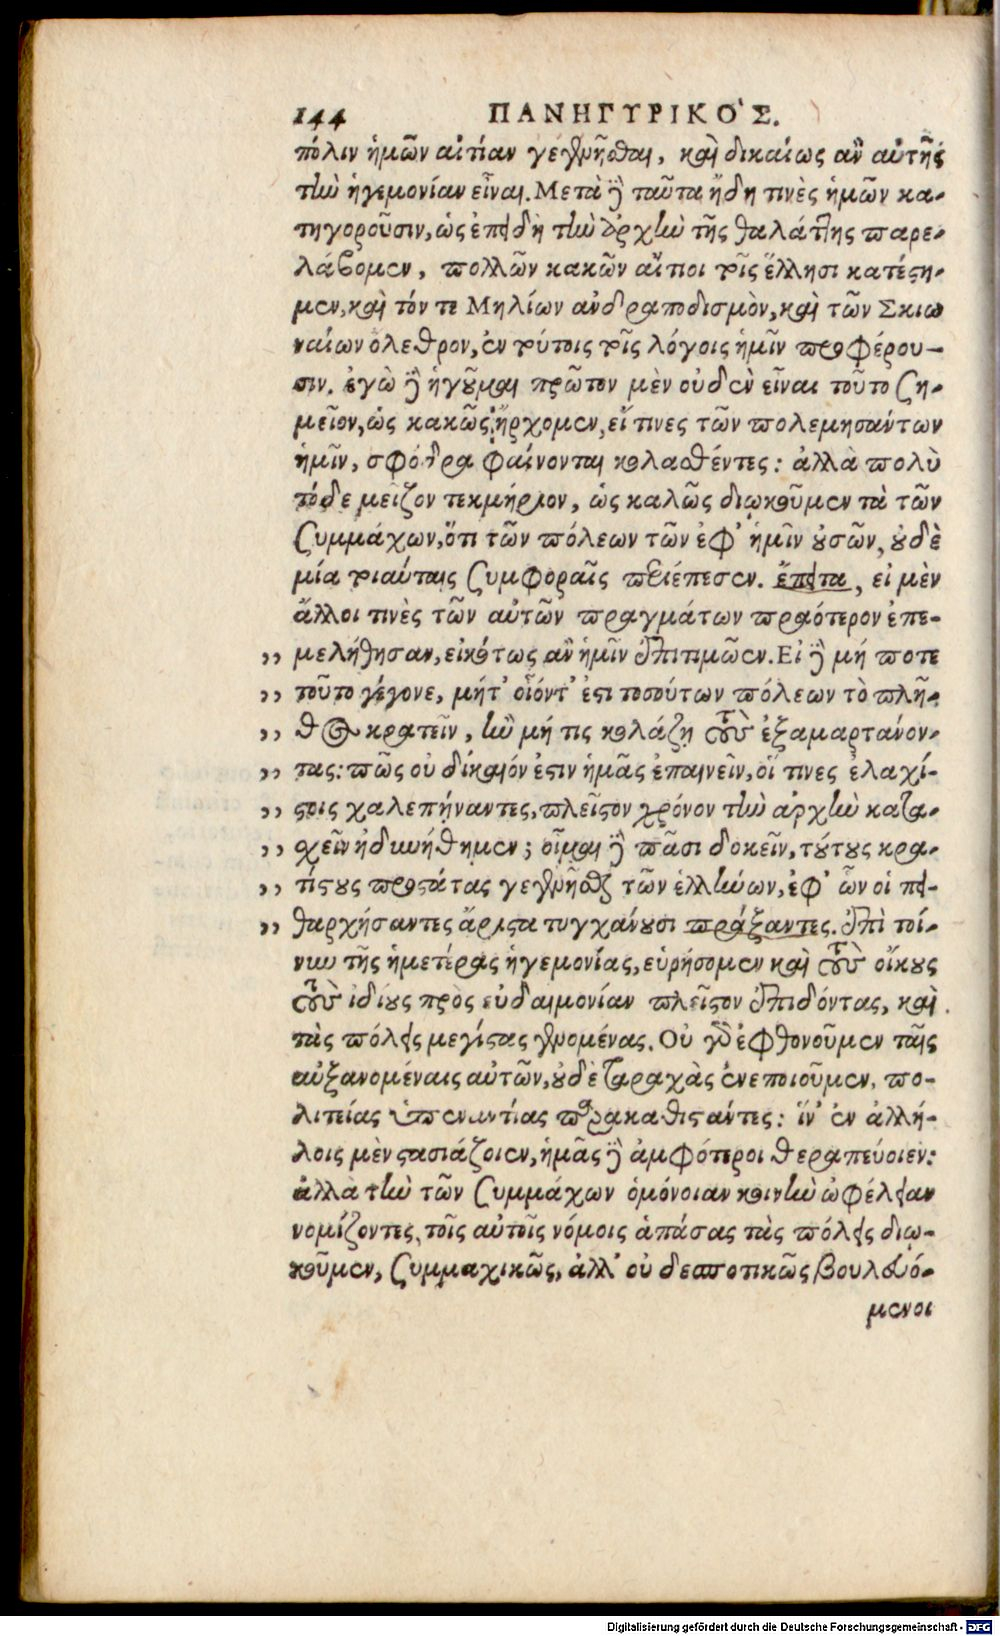 144 ΠΑΝΗΓΥΡΙΚΟ΄Σ.
πόλιν ἡμῶν αἰτίαν γεγενῆσθαι, καὶ δικαίως ἂν αὐτῆς
τὴν ἡγεμονίαν εἶναι. Μετὰ δὲ ταῦτα ἤδη τινὲς ἡμῶν κα-
τηγοροῦσιν, ὡς ἐπειδὴ τὴν ἀρχὴν τῆς θαλάττης παρε-
λάβομεν, πολλῶν κακῶν αἴτιοι τοῖς ἕλλησι κατέστη-
μεν, καὶ τόν τε Μηλίων ἀνδραποδισμὸν, καὶ τῶν Σκιω
ναίων ὄλεθρον, ἐν τούτοις τοῖς λόγοις ἡμῖν προφέρου-
σιν. ἐγὼ δὲ ἡγοῦμαι πρῶτον μὲν οὐδὲν εἶναι τοῦτο ση-
μεῖον, ὡς κακῶς ἤρχομεν, εἴ τινες τῶν πολεμησάντων
ἡμῖν, σφόδρα φαίνονται κολασθέντες: ἀλλὰ πολὺ
τόδε μεῖζον τεκμήριον, ὡς καλῶς διῳκοῦμεν τὰ τῶν
συμμάχων, ὅτι τῶν πόλεων τῶν ἐφ' ἡμῖν οὐσῶν, οὐδὲ
μία τοιαύταις συμφοραῖς περιέπεσεν. ἔπειτα, εἰ μὲν
ἄλλοι τινὲς τῶν αὐτῶν πραγμάτων πραότερον ἐπε-
,, μελήθησαν, εἰκότως ἂν ἡμῖν ἐπιτιμῶεν. Εἰ δὲ μή ποτε
,, τοῦτο γέγονε, μήτ' οἷόντ' ἐστι τοσούτων πόλεων τὸ πλῆ-
,, θος κρατεῖν, ἢν μή τις κολάζῃ τοὺς ἐξαμαρτάνον-
,, τας: πῶς οὐ δίκαιόν ἐστιν ἡμᾶς ἐπαινεῖν, οἵ τινες ἐλαχί-
,, στοις χαλεπήναντες, πλεῖστον χρόνον τὴν ἀρχὴν κατα-
,, σχεῖν ἠδυνήθημεν; οἶμαι δὲ πᾶσι δοκεῖν, τούτους κρα-
,, τίστους προστάτας γεγενῆσθαι τῶν ἑλλήνων, ἐφ' ὧν οἱ πει-
,, θαρχήσαντες ἄριστα τυγχάνουσι πράξαντες. ἐπὶ τοί-
νυν τῆς ἡμετέρας ἡγεμονίας, εὑρήσομεν καὶ τοὺς οἴκους
τοὺς ἰδίους πρὸς εὐδαιμονίαν πλεῖστον ἐπιδόντας, καὶ
τὰς πόλεις μεγίστας γενομένας. Οὐ γὰρ ἐφθονοῦμεν ταῖς
αὐξανομέναις αὐτῶν, οὐδὲ ταραχὰς ἐνεποιοῦμεν, πο-
λιτείας ὑπεναντίας παρακαθιστάντες: ἵν' ἐν ἀλλή-
λοις μὲν στασιάζοιεν, ἡμᾶς δὲ ἀμφότεροι θεραπεύοιεν:
ἀλλὰ τὴν τῶν συμμάχων ὁμόνοιαν κοινὴν ὠφέλειαν
νομίζοντες, τοῖς αὐτοῖς νόμοις ἁπάσας τὰς πόλεις διῳ-
κοῦμεν, συμμαχικῶς, ἀλλ' οὐ δεσποτικῶς βουλευό-
μενοι
Digitalisierung gefördert durch die Deutsche Forschungsgemeinschaft - DFG